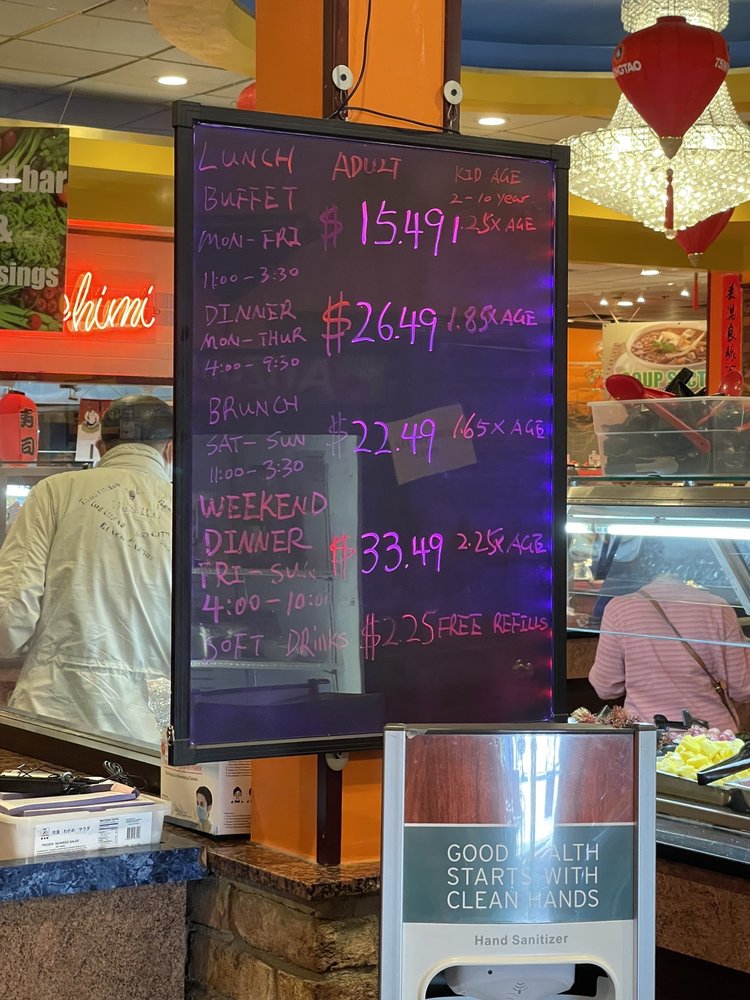 LUNCH ADULT KID AGE
BUFFET 2-10 year
MON-FRI $15.49 1.25x AGE
11:00-3:30
DINNER
MON-THUR $26.49 1.85x AGE
4:00-9:30
BRUNCH
SAT-SUN $22.49 1.65x AGE
11:00-3:30
WEEKEND
DINNER $33.49 2.25x AGE
FRI-SUN
4:00-10:00
SOFT DRINKS $2.25 FREE REFILLS
bar
&
sings
himi
寿
司
TSINGTAO
SOUP
GOOD HEALTH
STARTS WITH
CLEAN HANDS
Hand Sanitizer